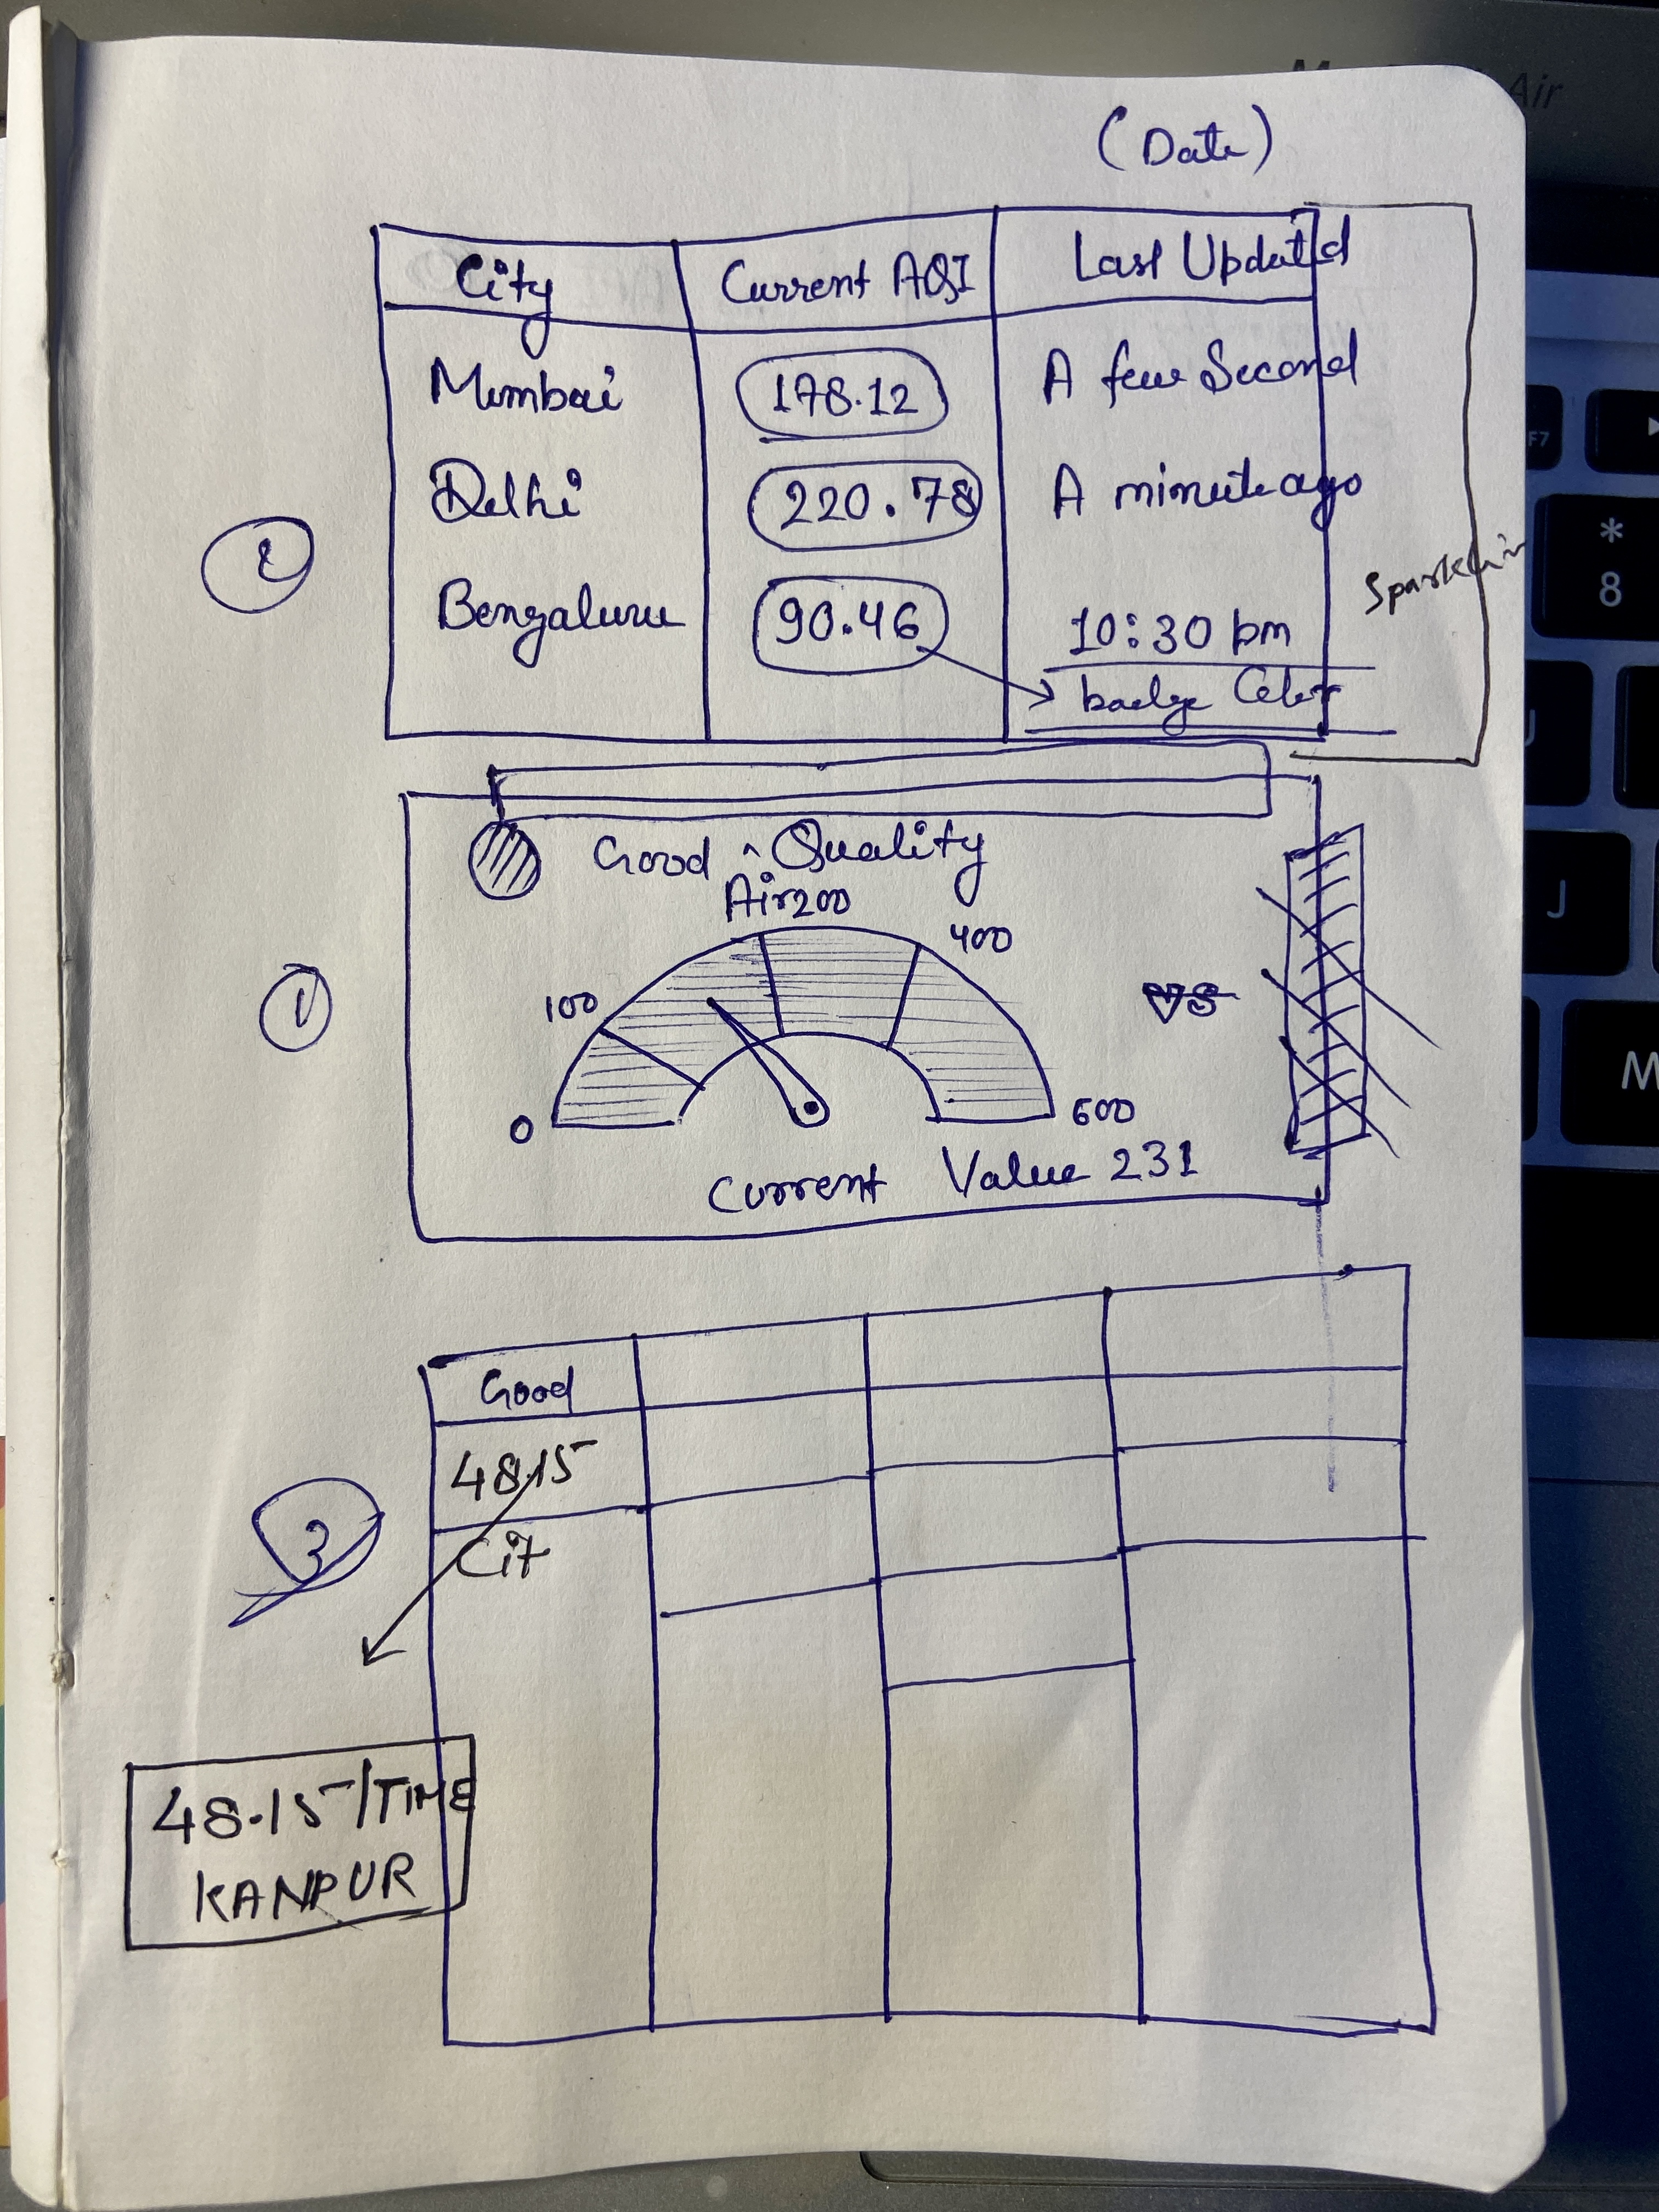 (Date)
City Current AQI Last Updated
Mumbai 178.12 A few Second
Delhi 220.78 A minute ago
Bengaluru 90.46 10:30 pm
badge Color
Good ^ Quality
Air 200
400
100
VS
0
600
Current Value 231
1
Good
48.15
Cit
3
48.15/TIME
KANPUR
Air
F7
*
8
J
M